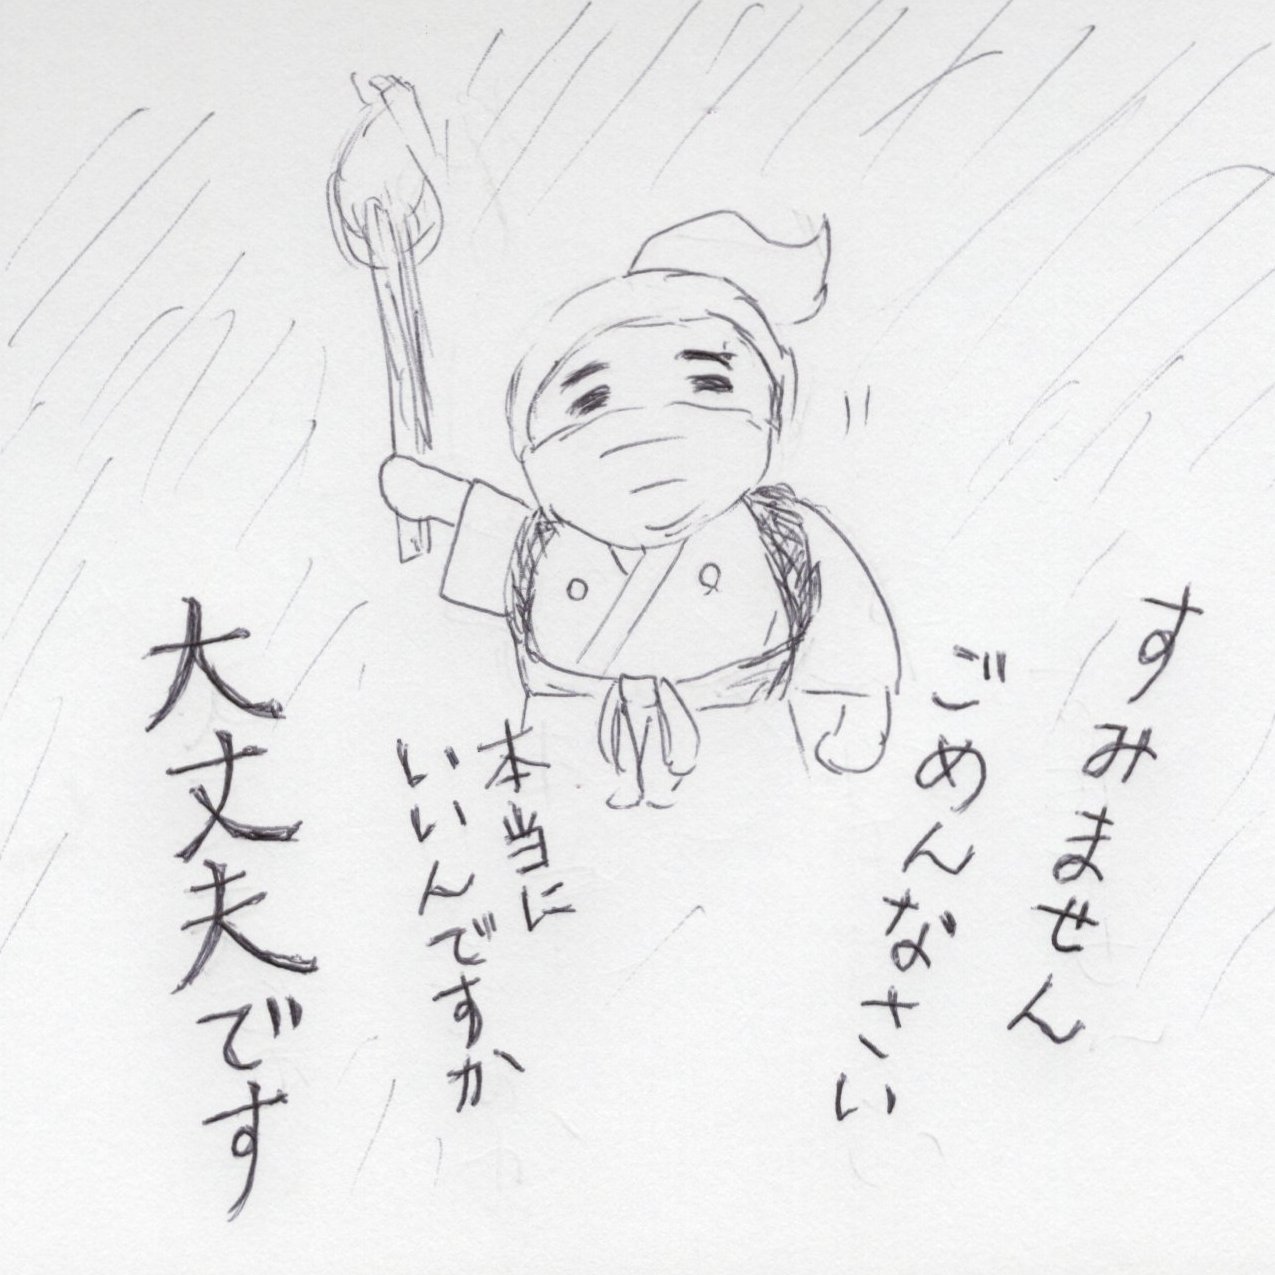 すみません
ごめんなさい
本当に
いいんですか
大丈夫です